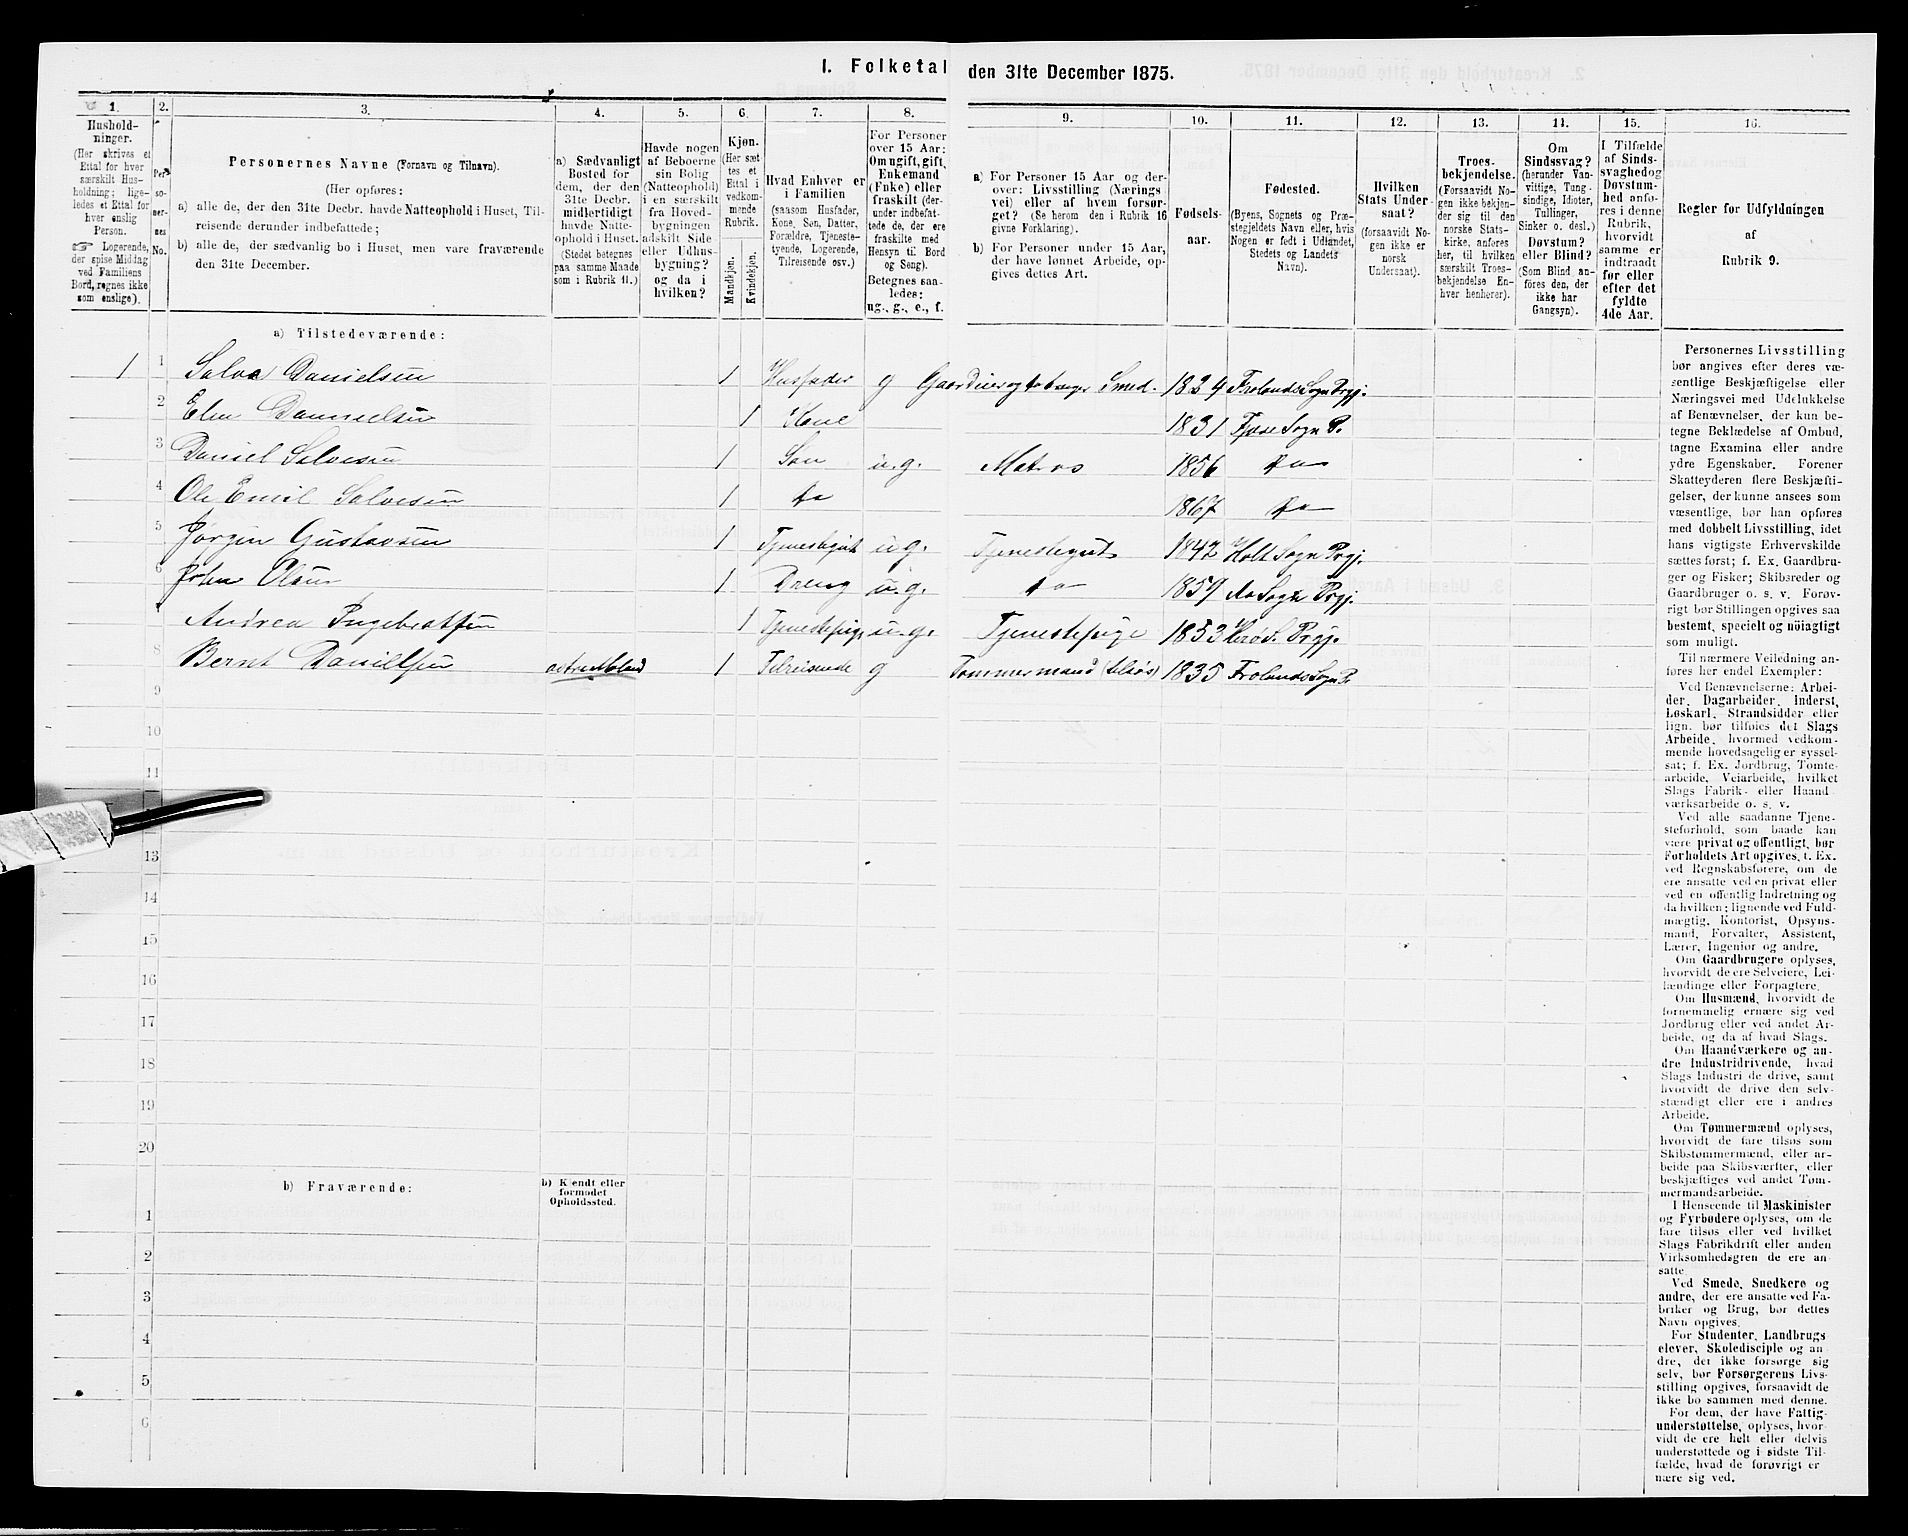 I. Folketal den 31te December 1875.
1.
Hushold-
ninger.
(Her skrives et
Ettal for hver
særskilt Hus-
holdning; lige-
ledes et Ettal for
hver enslig
Person.
☞ Logerende,
der spise Middag
ved Familiens
Bord, regnes ikke
som enslige).
2.
Per-
so-
ner-
nes
No.
3.
Personernes Navne (Fornavn og Tilnavn).
(Her opføres:
a) alle de, der den 31te Decbr. havde Natteophold i Huset, Til-
reisende derunder indbefattede;
b) alle de, der sædvanlig bo i Huset, men vare fraværende
den 31te December.
4.
a) Sædvanligt
Bosted for
dem, der den
31te Decbr.
midlertidigt
havde Natte-
ophold i Huset.
(Stedet betegnes
paa samme Maade
som i Rubrik 11.)
5.
Havde nogen
af Beboerne
sin Bolig
(Natteophold)
i en særskilt
fra Hoved-
bygningen
adskilt Side-
eller Udhus-
bygning?
og da i
hvilken?
6.
Kjøn.
(Her sæt-
tes et
Ettal i
vedkom-
mende
Rubrik.
Mandkjøn.
Kvindekjøn.
7.
Hvad Enhver er
i Familien
(saasom Husfader,
Kone, Søn, Datter,
Forældre, Tjeneste-
tyende, Logerende,
Tilreisende osv.)
8.
For Personer
over 15 Aar:
Om ugift, gift,
Enkemand
(Enke) eller
fraskilt (der-
under indbefat-
tede de, der ere
fraskilte med
Hensyn til Bord
og Seng).
Betegnes saa-
ledes:
ug., g., e., f.
9.
a) For Personer 15 Aar og der-
over: Livsstilling (Nærings-
vei) eller af hvem forsør-
get? (Se herom den i Rubrik 16
givne Forklaring).
b) For Personer under 15 Aar,
der have lønnet Arbeide, op-
gives dettes Art.
10.
Fødsels-
aar.
11.
Fødested.
(Byens, Sognets og Præ-
stegjeldets Navn eller, hvis
Nogen er født i Udlandet,
Stedets og Landets
Navn).
12.
Hvilken
Stats Under-
saat?
(forsaavidt No-
gen ikke er
norsk
Undersaat).
13.
Troes-
bekjendelse.
(Forsaavidt No-
gen ikke bekjen-
der sig til den
norske Stats-
kirke, anføres
her, til hvilken
særskilt Troes-
bekjendelse En-
hver henhører).
14.
Om
Sindssvag?
(herunder Van-
vittige, Tung-
sindige, Idioter,
Tullinger,
Sinker o. desl.)
Døvstum?
eller Blind?
(Som Blind an-
føres den, der
ikke har
Gangsyn).
15.
I Tilfælde
af Sinds-
svaghed og
Døvstum-
hed anfø-
res i denne
Rubrik,
hvorvidt
samme er
indtraadt
før eller
efter det
fyldte
4de Aar.
16.
Regler for Udfyldningen
af
Rubrik 9.
a) Tilstedeværende:
1 1 Salve Danielsen 1 Husfader g Smed. 1824 Frolands Sogn Prgj.
2 Elen Danielsen 1 Kone 1831 Sogn P.
3 Daniel Salvesen 1 Søn u.g. Matros 1856 do
4 Ole Emil Salvesen 1 do 1867 do
5 Jørgen Gustavsen 1 Tjenestegut u.g. Tjenestegut 1842 Holt Sogn Prgj.
6 John Olsen 1 Dreng u.g. do 1859 Sogn Prgj.
7 Andrea Ingebretsen 1 Tjenestepige u.g. Tjenestepige 1853 Prgj.
8 Bernt Danielsen 1 Tilreisende g Tømmermand (tilsøs) 1835 Frolands Sogn P.
9
10
11
13
14
15
16
17
18
19
20
b) Fraværende:
b) Kjendt eller
formodet
Opholdssted.
1
2
3
4
5
6
Personernes Livsstilling
bør angives efter deres væ-
sentlige Beskjæftigelse eller
Næringsvei med Udelukkelse
af Benævnelser, der kun be-
tegne Beklædelse af Ombud,
tagne Examina eller andre
ydre Egenskaber. Forener
Skatteyderen flere Beskjæfti-
gelser, der kunne ansees som
væsentlige, bør han opføres
med dobbelt Livsstilling, idet
hans vigtigste Erhvervskilde
sættes først; f. Ex. Gaardbru-
ger og Fisker; Skibsreder og
Gaardbruger o. s. v. Forøv-
rigt bør Stillingen opgives saa
bestemt, specielt og nöiagtigt
som muligt.
Til nærmere Veiledning an-
føres her endel Exempler:
Ved Benævnelserne: Arbei-
der, Dagarbeider, Inderst,
Løskarl, Strandsidder eller
lign. bør tilføies det Slags
Arbeide, hvormed vedkom-
mende hovedsagelig er syssel-
sat; f. Ex. Jordbrug, Tomte-
arbeide, Veiarbeide, hvilket
Slags Fabrik- eller Haand-
værksarbeide o. s. v.
Ved alle saadanne Tjene-
steforhold, som baade kan
være privat og offentligt, bør
Forholdets Art opgives, t. Ex.
ved Regnskabsførere, om de
ere ansatte ved en privat eller
ved en offentlig Indretning og
da hvilken; lignende ved Fuld-
mægtig, Kontorist, Opsyns-
mand, Forvalter, Assistent,
Lærer, Ingeniør og andre.
Om Gaardbrugere oplyses,
hvorvidt de ere Selveiere, Lei-
lændinge eller Forpagtere.
Om Husmænd, hvorvidt de
fornemmelig ernære sig ved
Jordbrug eller ved andet Ar-
beide, og da af hvad Slags.
Om Haandværkere og an-
dre Industridrivende, hvad
Slags Industri de drive, samt
hvorvidt de drive den selv-
stændigt eller ere i andres
Arbeide.
Om Tømmermænd oplyses,
hvorvidt de fare tilsøs som
Skibstømmermænd, eller ar-
beide paa Skibsværfter, eller
beskjæftiges ved andet Tøm-
mermandsarbeide.
I Henseende til Maskinister
og Fyrbødere oplyses, om de
fare tilsøs eller ved hvilket
Slags Fabrikdrift eller anden
Virksomhedsgren de ere an-
satte.
Ved Smede, Snedkere og
andre, der ere ansatte ved Fa-
briker og Brug, bør dettes
Navn opgives.
For Studenter, Landbrugs-
elever, Skoledisciple og an-
dre, der ikke forsørge sig
selv, bør Forsørgerens Livs-
stilling opgives, forsaavidt de
ikke bo sammen med denne.
For dem, der have Fattig-
understøttelse, oplyses, hvor-
vidt de ere helt eller delvis
understøttede og i sidste Til-
fælde, hvad de forøvrigt er-
nære sig ved.